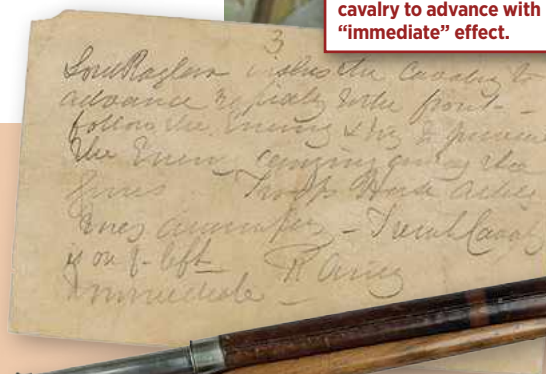 cavalry to advance with
“immediate” effect.
3
Lord Raglan wishes the Cavalry to
advance rapidly to the front -
follow the Enemy & try to prevent
the Enemy carrying away the
guns - Troop Horse Artill
may accompany - French Caval
is on y. left
R Airey
Immediate -